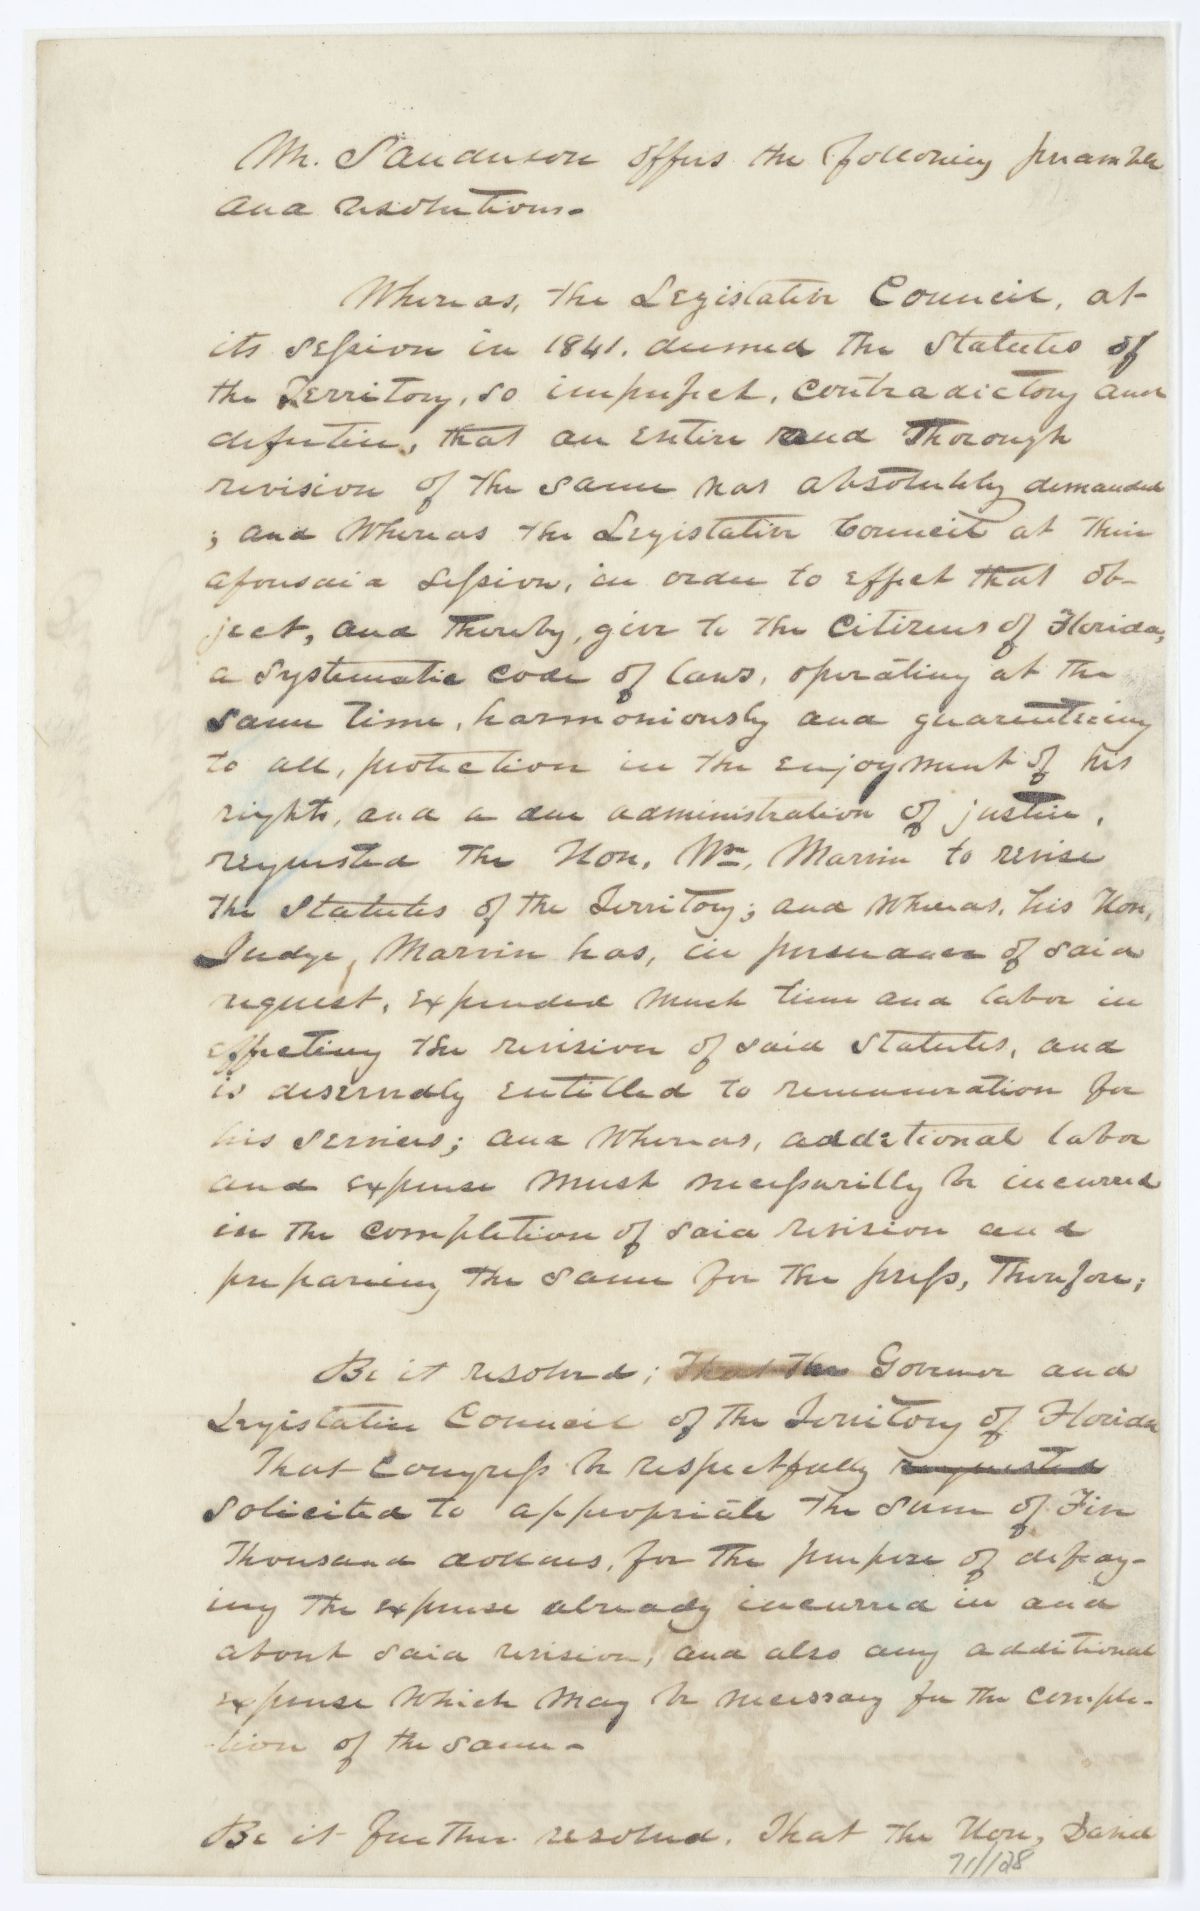 Mr. Sanderson offers the following preamble
and resolutions.
Whereas, the Legislative Council, at
its session in 1841. deemed the Statutes of
the Territory, so imperfect, contradictory and
defective, that an entire and thorough
revision of the same was absolutely demanded
; and Whereas the Legislative Council at their
aforesaid session, in order to effect that ob-
ject, and thereby, give to the Citizens of Florida,
a systematic code of laws, operating at the
same time, harmoniously and guarenteeing
to all, protection in the enjoyment of his
rights, and a due administration of justice,
requested the Hon, Wm, Marvin to revise
the Statutes of the Territory; and Whereas, his Hon,
Judge, Marvin has, in pursuance of said
request, expended much time and labor in
effecting the revision of said Statutes, and
is deservedly entitled to remuneration for
his services; and Whereas, additional labor
and expense must necessarilly be incurred
in the completion of said revision and
preparing the same for the press, Therefore;
Be it resolved; That the Governor and
Legislative Council of the Territory of Florida
That Congress be respectfully requested
solicited to appropriate the sum of Five
Thousand dollars, for the purpose of defray-
ing the expense already incurred in and
about said revision, and also any additional
expense which may be necessary for the comple-
tion of the same.
Be it further resolved. That the Hon, David
71/128